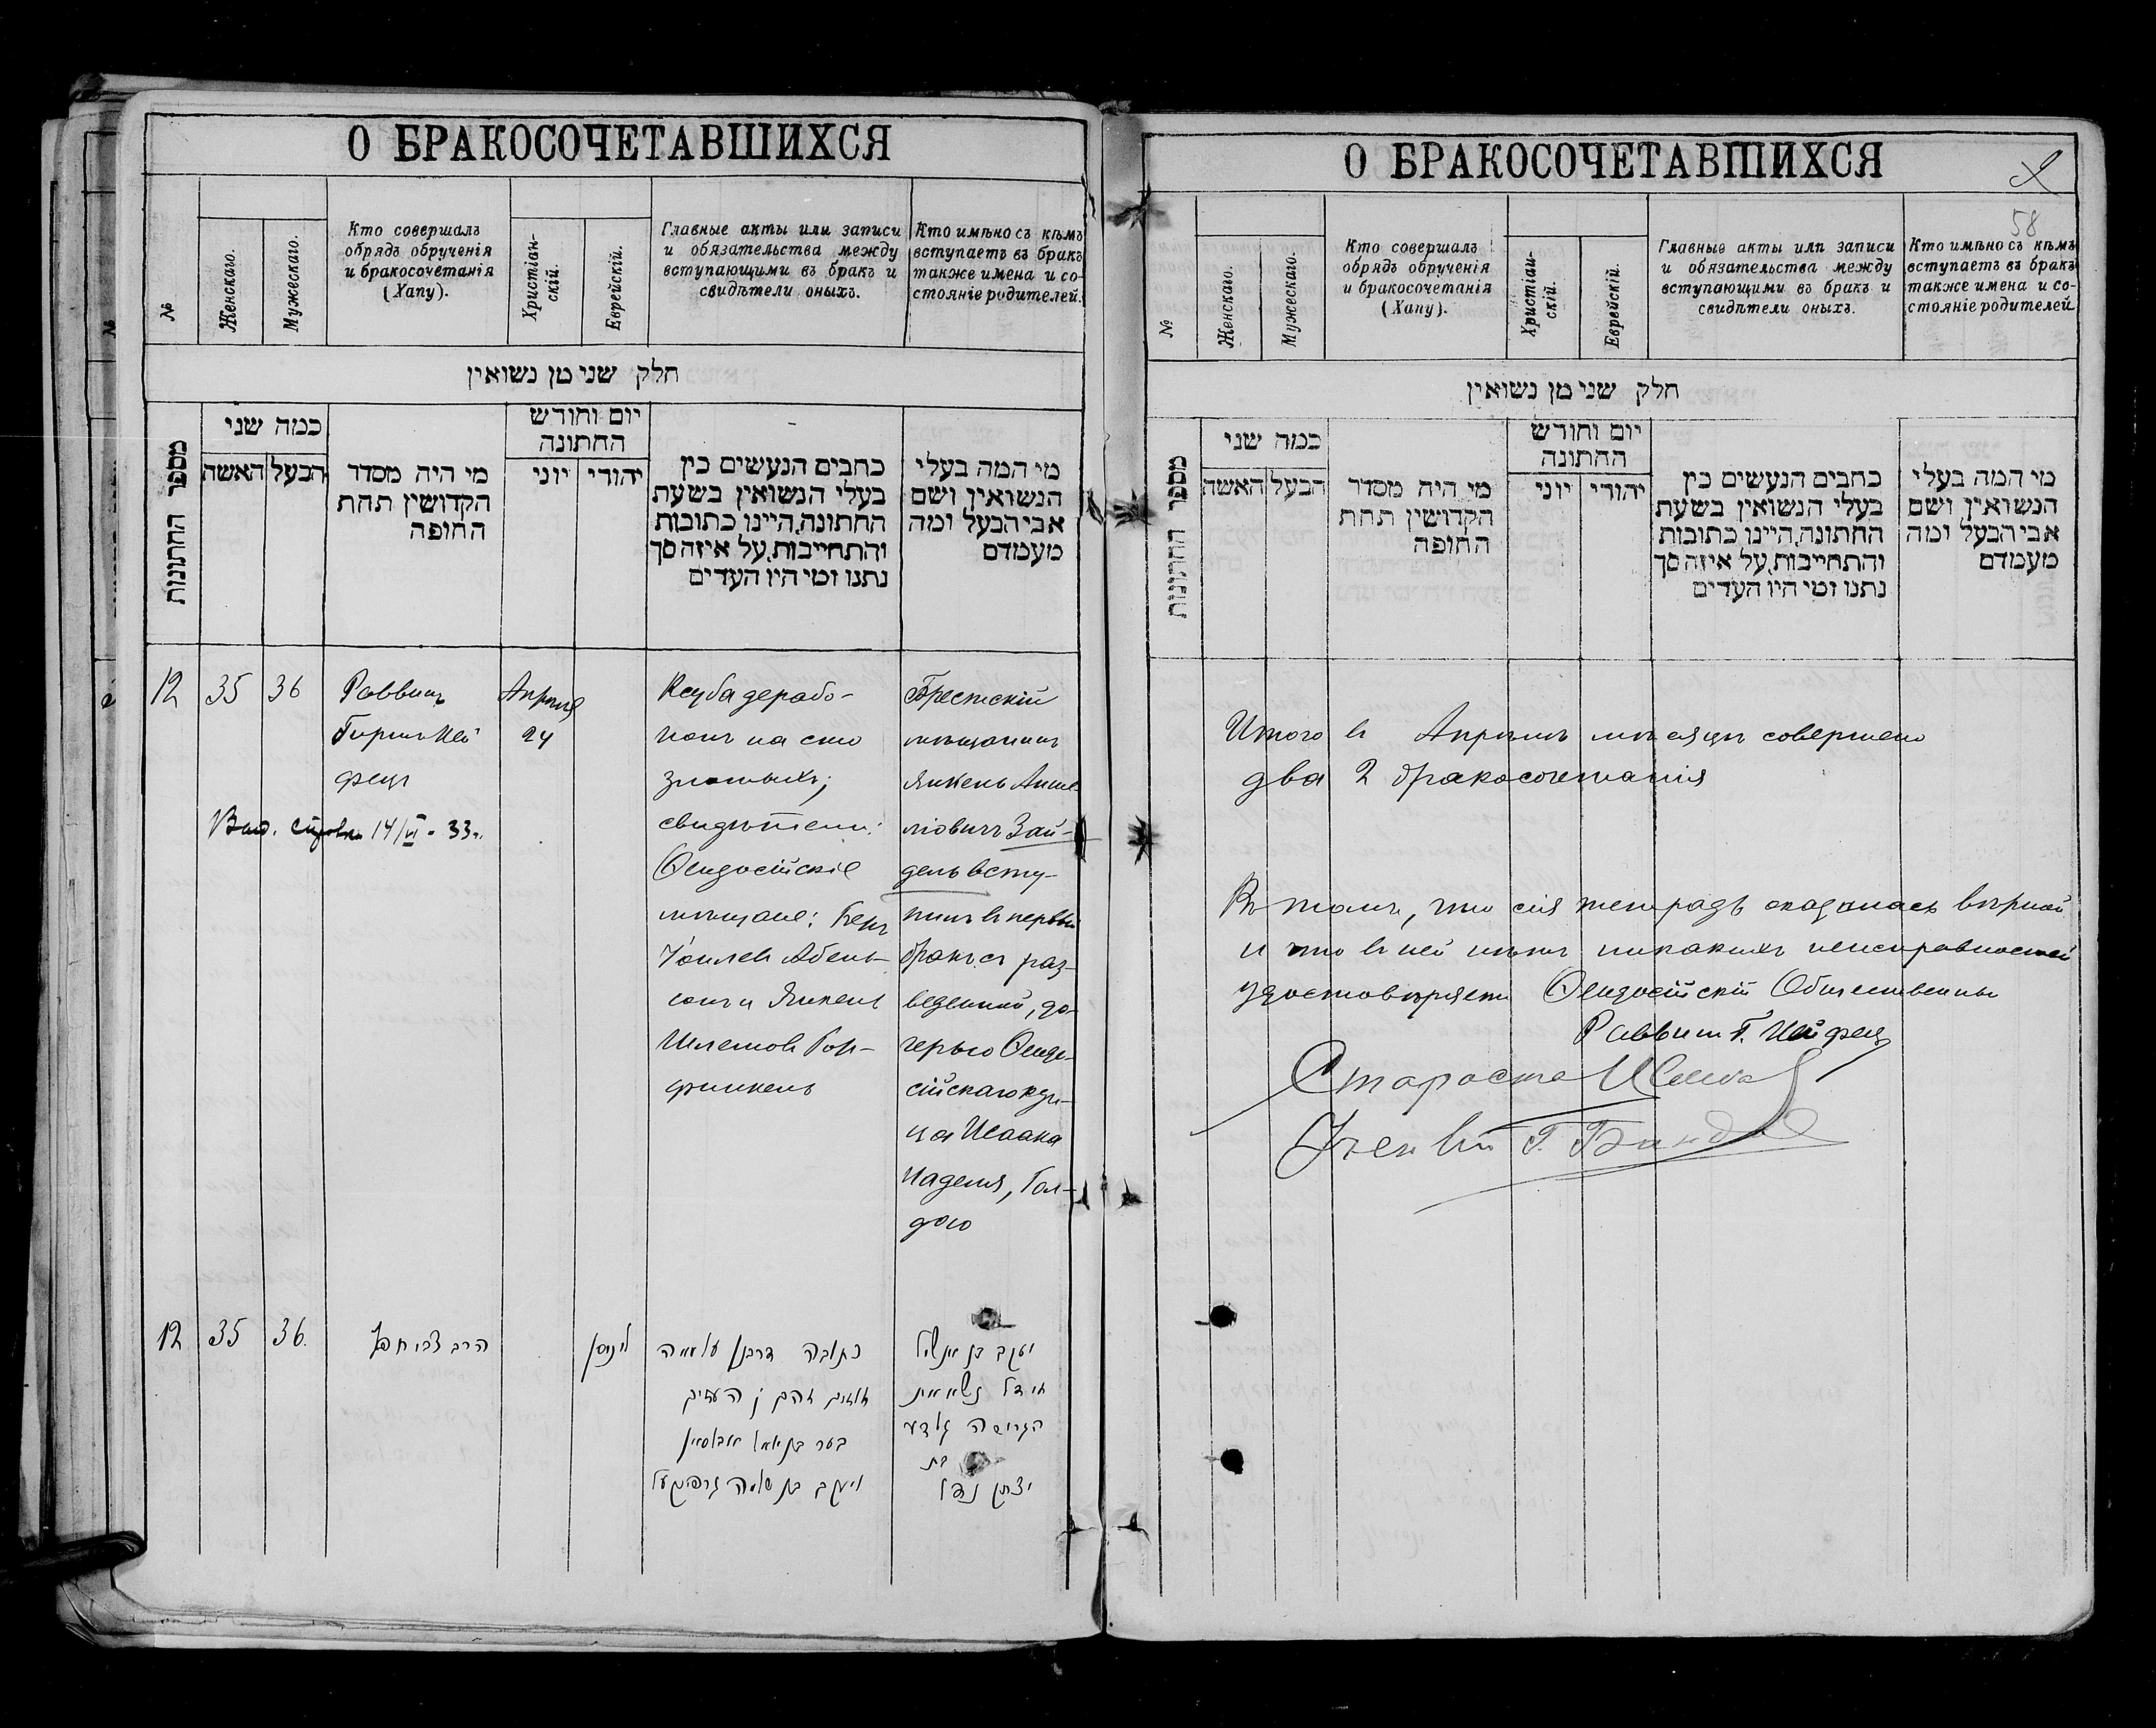 О БРАКОСОЧЕТАВШИХСЯ
№
Женскаго.
Мужескаго.
Кто совершалъ
обрядъ обрученія
и бракосочетанія
(Хапу).
Христіан-
скій.
Еврейскій.
Главные акты или записи
и обязательства между
вступающими въ бракъ и
свидѣтели оныхъ.
Кто имѣно съ кѣмъ
вступаетъ въ бракъ
также имена и со-
стояніе родителей.
חלק שני מן נשואין
מספר החתונות
כמה שני
האשה
הבעל
מי היה מסדר
הקדושין תחת
החופה
יום וחודש
החתונה
יוני
יהודי
כתבים הנעשים בין
בעלי הנשואין בשעת
החתונה,היינו כתובות
והתחייבות,על איזה סך
נתנו ומי היו העדים
מי המה בעלי
הנשואין ושם
אבי הבעל ומה
מעמדם
12
35
36
Раввинъ
Гиршъ Хей
фецъ
Выд. справка 14/VI - 33 г.
Апрѣля
24
Ксуба дерабо-
нонъ на сто
злотыхъ;
свидѣтели:
Ѳеодосійскіе
мѣщане: Беръ
Іоилевъ Абель-
сонъ и Янкель
Шлемовъ Гор-
финкель
Брестскій
мѣщанинъ
Янкель Анше-
ліовичъ Зай-
дель всту-
пилъ въ первый
бракъ съ раз-
веденной, до-
черью Ѳеодо-
сійскаго куп-
ца Исаака
Наделя, Гол-
дою
12
35
36.
הרב צבי חפץ
כתובה דרבנן
יעקב בן אנשיל
זיידל
הגרושה גאלדע
בת
ויעקב בן שלמה גרפינקעל
יצחק נאדל
О БРАКОСОЧЕТАВШИХСЯ
58
№
Женскаго.
Мужескаго.
Кто совершалъ
обрядъ обрученія
и бракосочетанія
(Хапу).
Христіан-
скій.
Еврейскій.
Главные акты или записи
и обязательства между
вступающими въ бракъ и
свидѣтели оныхъ.
Кто имѣно съ кѣмъ
вступаетъ въ бракъ
также имена и со-
стояніе родителей.
חלק שני מן נשואין
מספר החתונות
כמה שני
האשה
הבעל
מי היה מסדר
הקדושין תחת
החופה
יום וחודש
החתונה
יוני
יהודי
כתבים הנעשים בין
בעלי הנשואין בשעת
החתונה,היינו כתובות
והתחייבות,על איזה סך
נתנו ומי היו העדים
מי המה בעלי
הנשואין ושם
אבי הבעל ומה
מעמדם
Итого въ Апрѣлѣ мѣсяцѣ совершено
два 2 бракосочетанія
Въ томъ, что сія тетрадь оказалась вѣрной
и что въ ней нѣтъ никакихъ неисправностей
удостовѣряетъ Ѳеодосійскій Общественный
Раввинъ Г. Хейфецъ
Староста
Ученый Г.